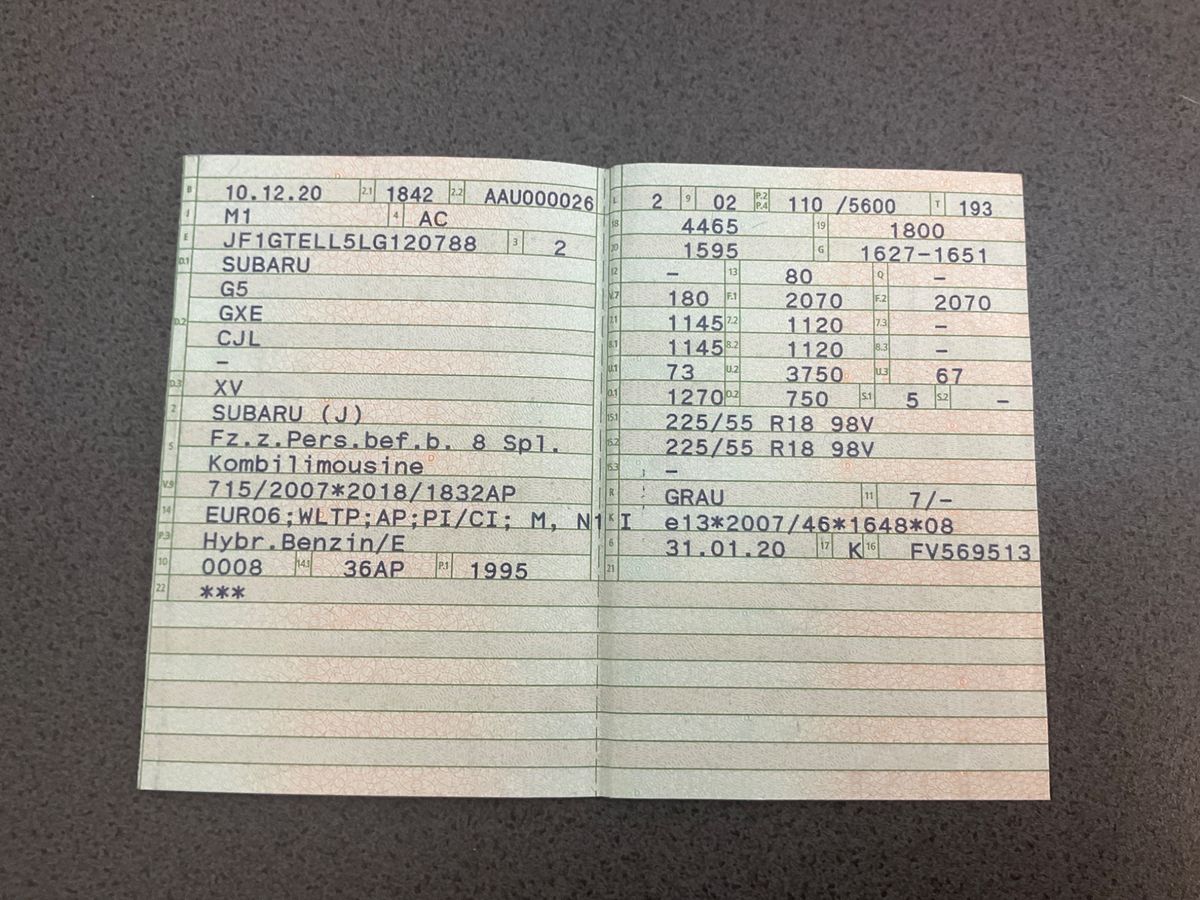 B 10.12.20 2.1 1842 2.2 AAU000026
J M1 4 AC
E JF1GTELL5LG120788 3 2
D.1 SUBARU
G5
D.2 GXE
CJL
–
D.3 XV
2 SUBARU (J)
5 Fz.z.Pers.bef.b. 8 Spl.
Kombilimousine
V.9 715/2007*2018/1832AP
14 EURO6;WLTP;AP;PI/CI; M, N1 I
P.3 Hybr.Benzin/E
10 0008 14.1 36AP P.1 1995
22 ***
L 2 9 02 P.2 P.4 110 /5600 T 193
18 4465 19 1800
20 1595 G 1627-1651
12 – 13 80 Q –
V.7 180 F.1 2070 F.2 2070
7.1 1145 7.2 1120 7.3 –
8.1 1145 8.2 1120 8.3 –
U.1 73 U.2 3750 U.3 67
O.1 1270 O.2 750 S.1 5 S.2 –
15.1 225/55 R18 98V
15.2 225/55 R18 98V
15.3 –
R GRAU 11 7/–
K e13*2007/46*1648*08
6 31.01.20 17 K 16 FV569513
21